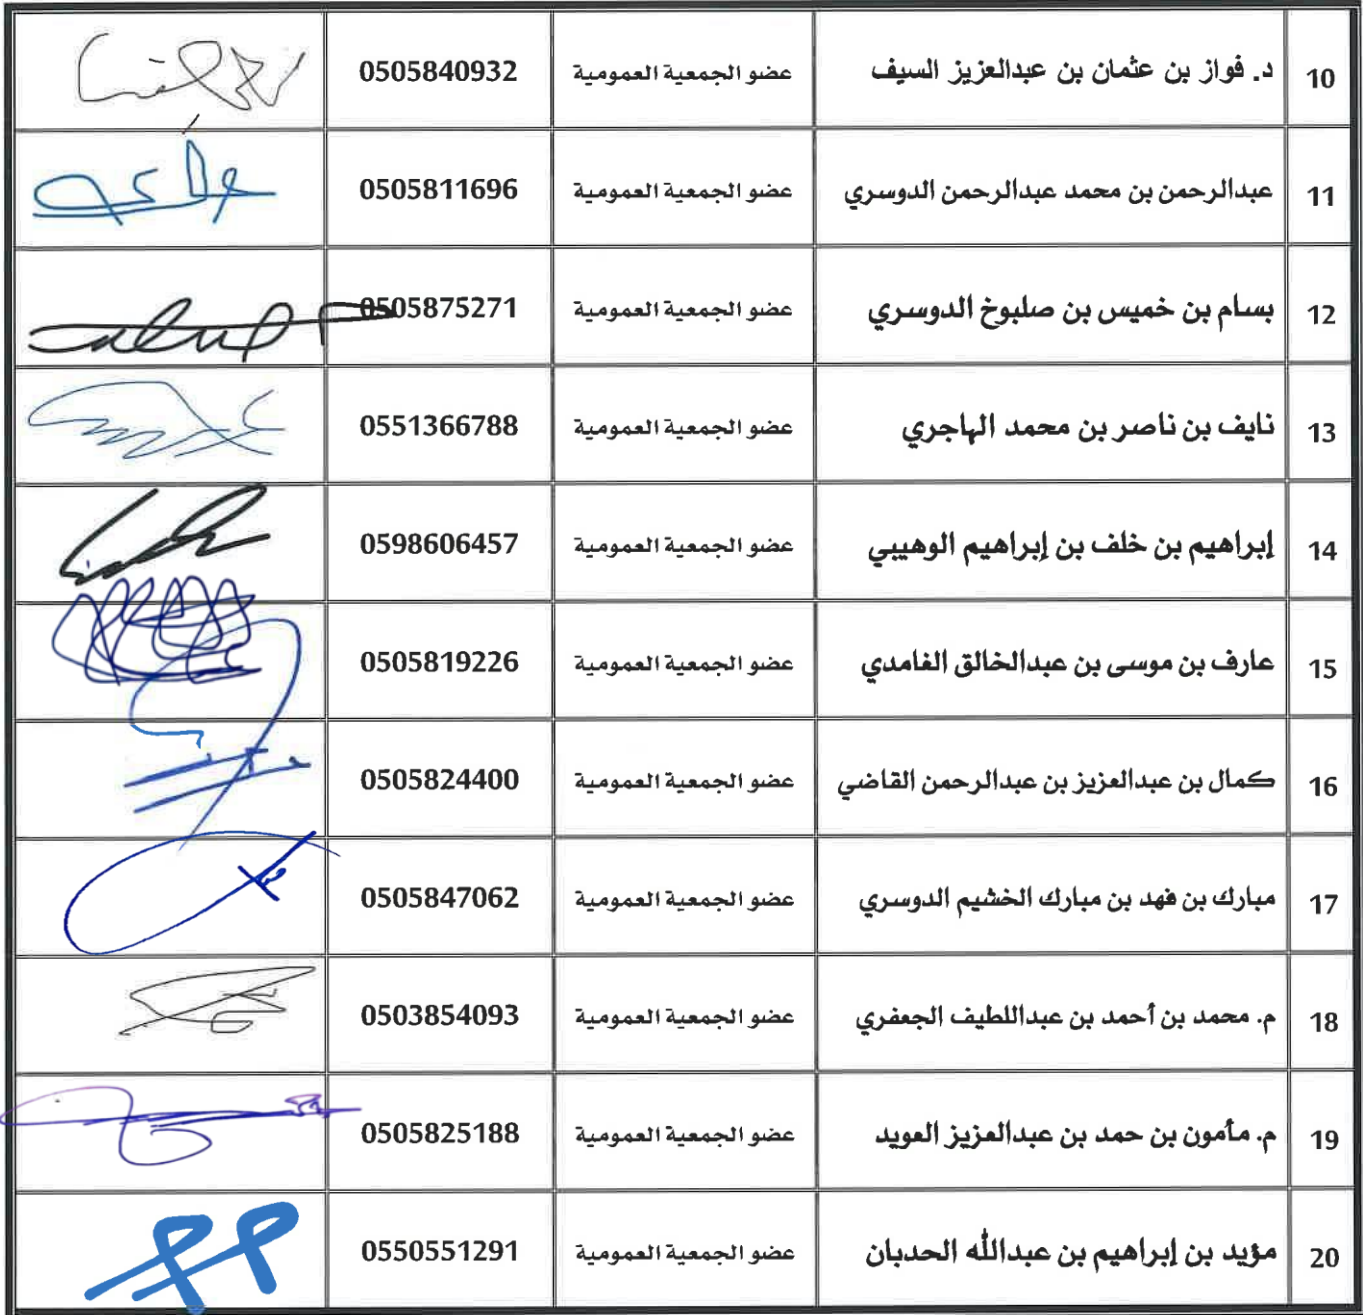 10 د. فواز بن عثمان بن عبدالعزيز السيف عضو الجمعية العمومية 0505840932
11 عبدالرحمن بن محمد عبدالرحمن الدوسري عضو الجمعية العمومية 0505811696
12 بسام بن خميس بن صلبوخ الدوسري عضو الجمعية العمومية 0505875271
13 نايف بن ناصر بن محمد الهاجري عضو الجمعية العمومية 0551366788
14 إبراهيم بن خلف بن إبراهيم الوهيبي عضو الجمعية العمومية 0598606457
15 عارف بن موسى بن عبدالخالق الغامدي عضو الجمعية العمومية 0505819226
16 كمال بن عبدالعزيز بن عبدالرحمن القاضي عضو الجمعية العمومية 0505824400
17 مبارك بن فهد بن مبارك الخشيم الدوسري عضو الجمعية العمومية 0505847062
18 م. محمد بن أحمد بن عبداللطيف الجعفري عضو الجمعية العمومية 0503854093
19 م. مأمون بن حمد بن عبدالعزيز العويد عضو الجمعية العمومية 0505825188
20 مؤيد بن إبراهيم بن عبدالله الحدبان عضو الجمعية العمومية 0550551291